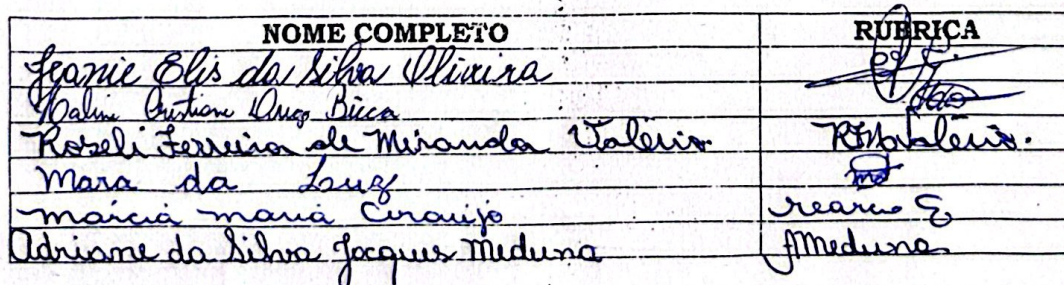 NOME COMPLETO RUBRICA
Jeanie Elis da Silva Oliveira
Cristiane Bicca
Roseli Ferreira de Miranda Valério. RFMValério.
Mara da Luz
Marcia Maria Araujo
Adriane da Silva Jacques Meduna AMeduna